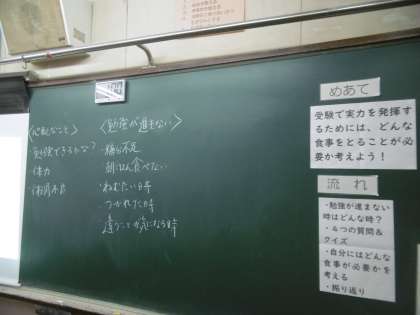 <心配なこと>
・勉強できるかな?
・体力
・体調不良
<勉強が進まない>
・糖分不足
朝ごはん食べてない
・ねむたい時
・つかれた時
・違うことが気になる時
めあて
受験で実力を発揮す
るためには、どんな
食事をとることが必
要か考えよう!
流れ
・勉強が進まない
時はどんな時?
・4つの質問&
クイズ
・自分にはどんな
食事が必要かを
考える
・振り返り